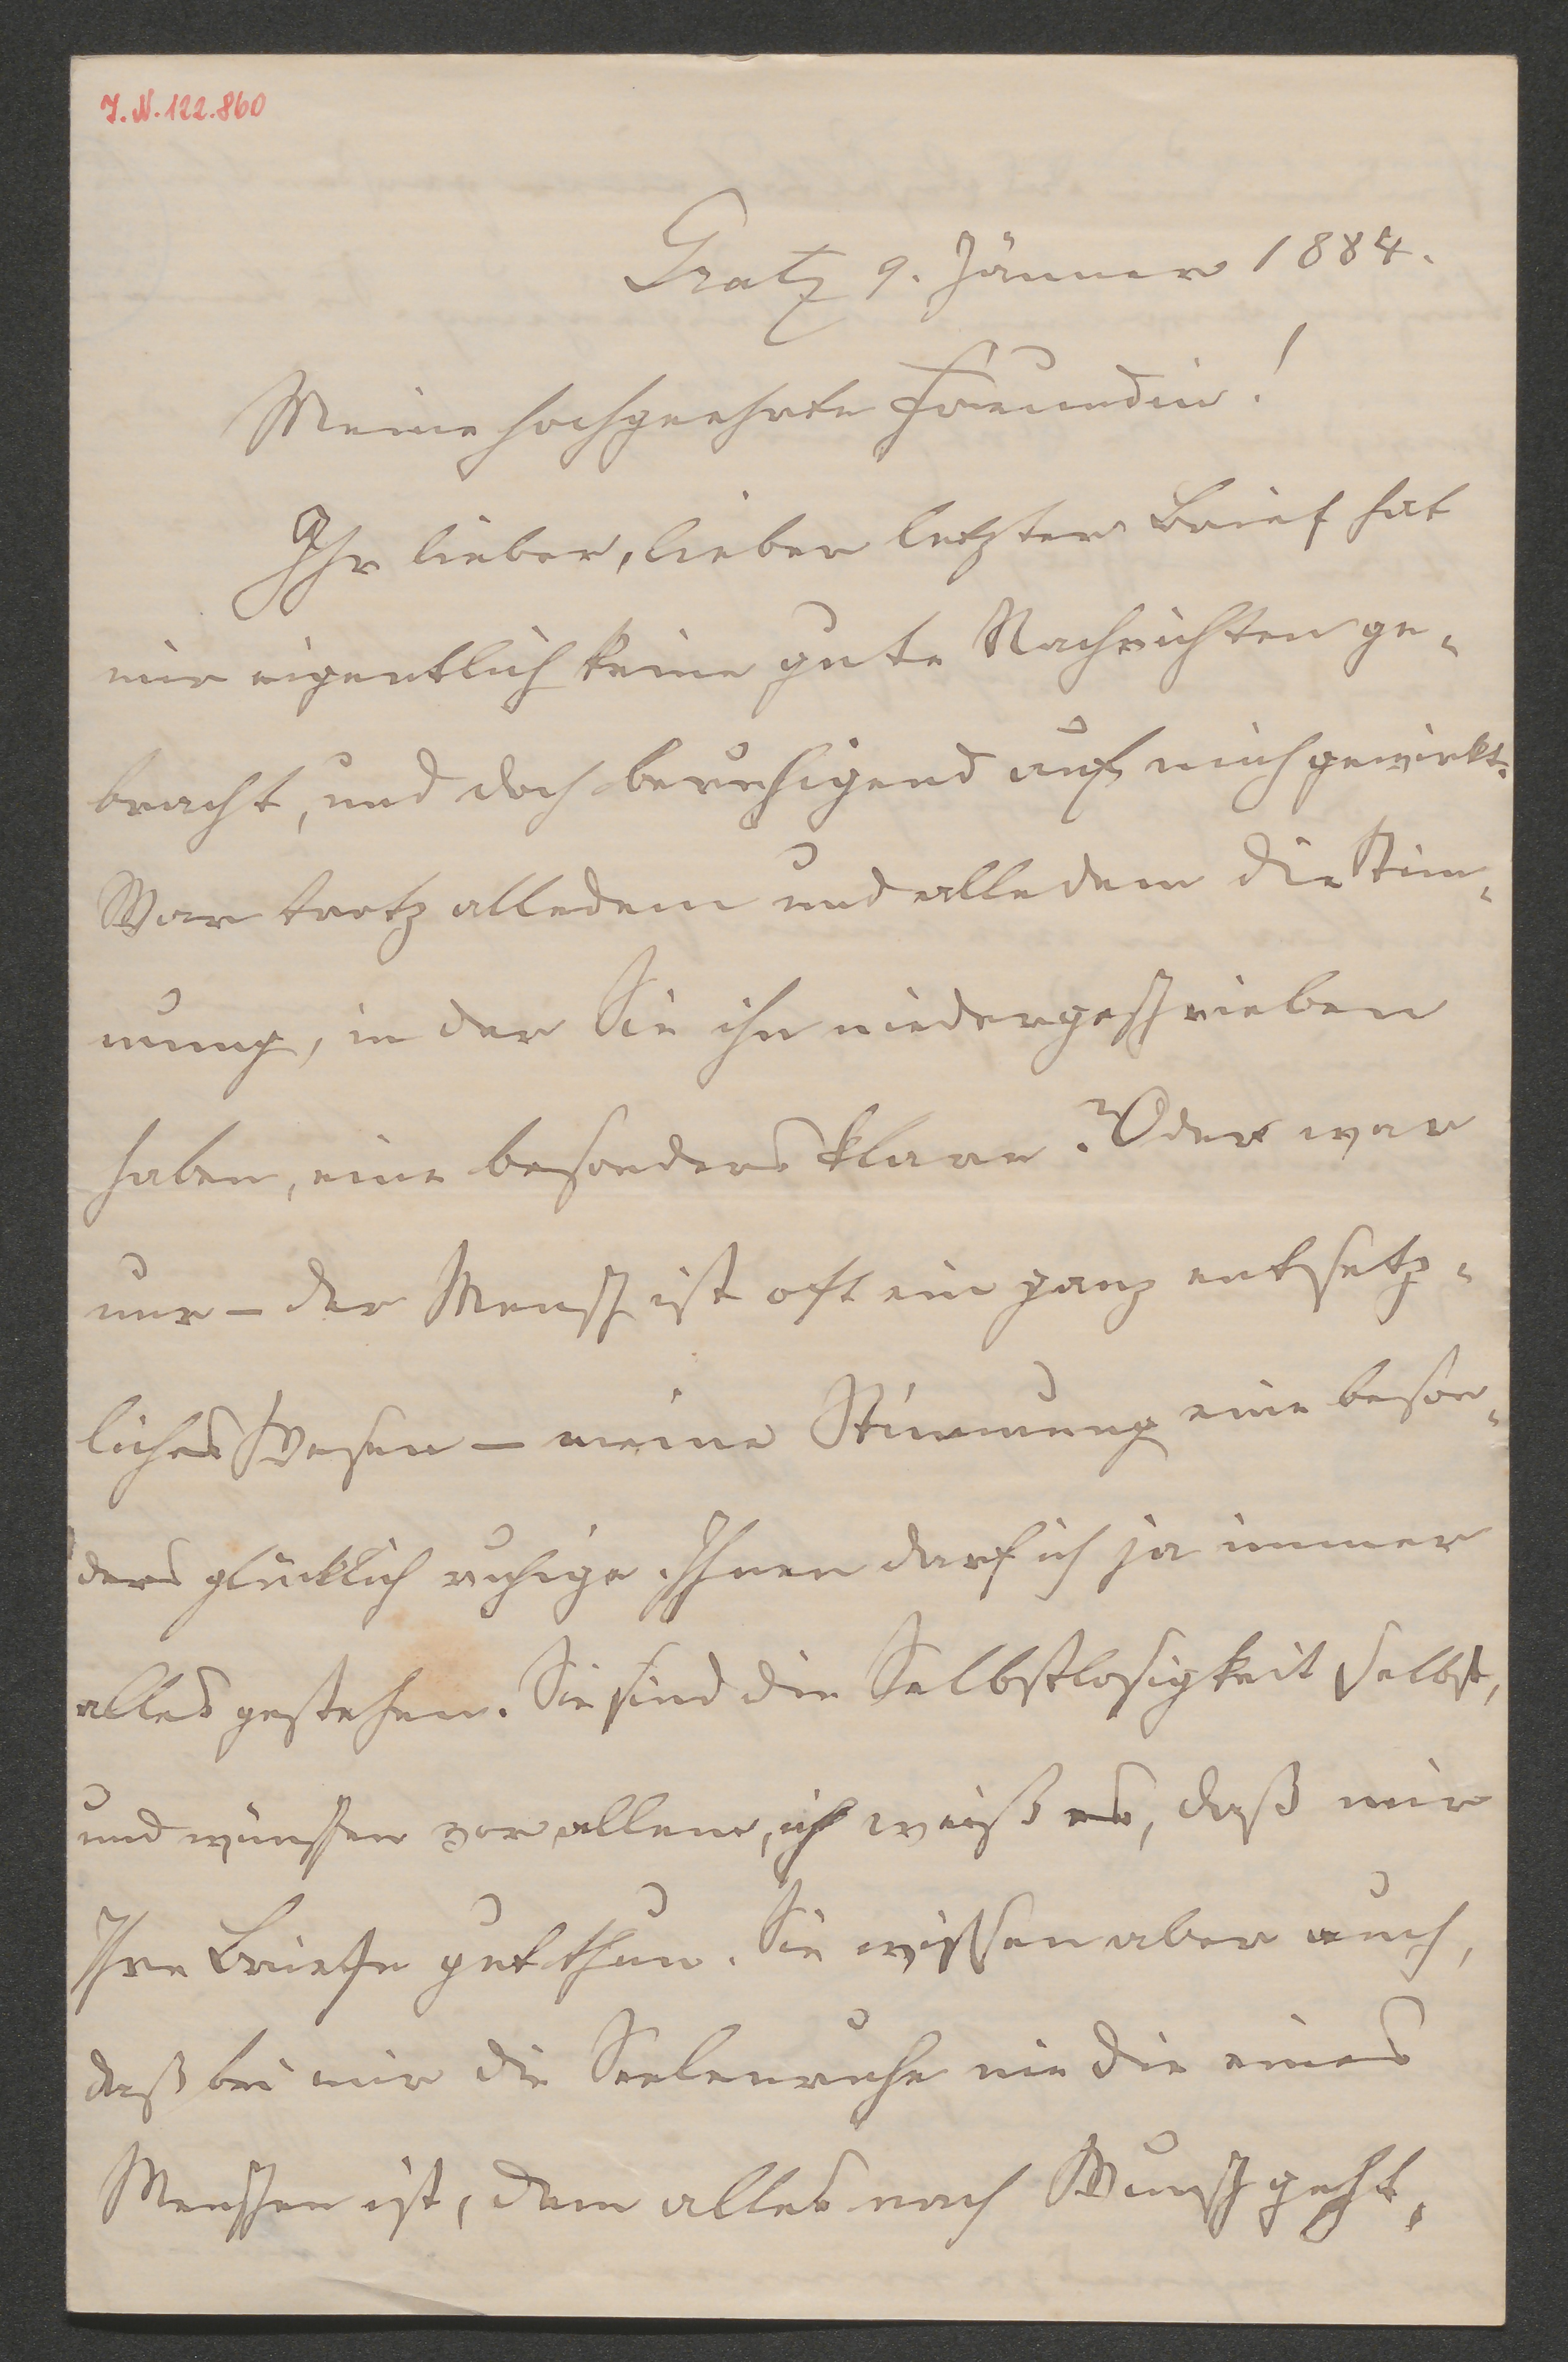 J. N. 122.860
Gratz 9. Jänner 1884.
Meine hochgeehrte Freundin!
Ihr lieber, lieber letzter Brief hat
mir eigentlich keine gute Nachrichten ge-
bracht, und doch beruhigend auf mich gewirkt.
War trotz alledem und alledem die Stim-
mung, in der Sie ihn niedergeschrieben
haben, eine besonders klare? Oder war
nur – der Mensch ist oft ein ganz entsetz-
liches Wesen – meine Stimmung eine beson-
ders glücklich ruhige. Ihnen darf ich ja immer
alles gestehen. Sie sind die Selbstlosigkeit selbst,
und wünschen vor allem, ich weiß es, daß mir
Ihre Briefe gut thun. Sie wissen aber auch,
daß bei mir die Seelenruhe nie die eines
Menschen ist, dem alles nach Wunsch geht.